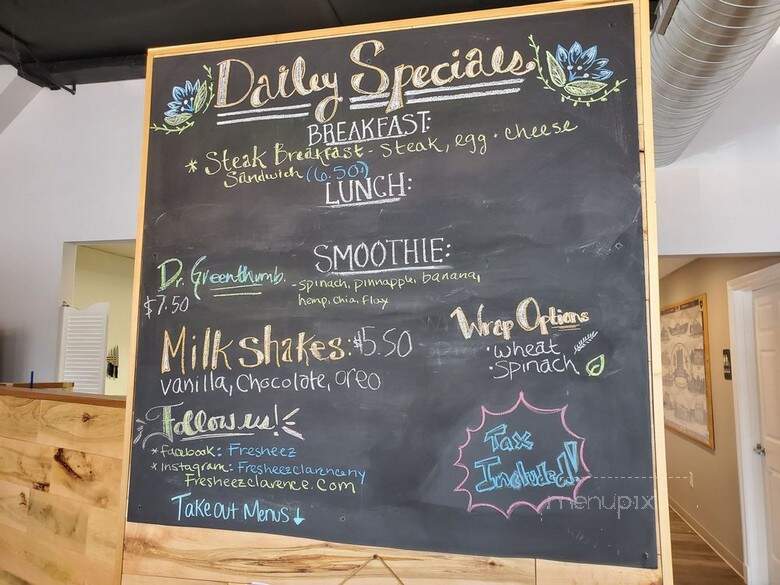 Daily Specials
BREAKFAST:
* Steak Breakfast - Steak, egg · cheese
Sandwich (6.50)
LUNCH:
SMOOTHIE:
Dr. Greenthumb
$7.50
- spinach, pinnapple, banana,
hemp, chia, flax
Milkshakes: $5.50
vanilla, Chocolate, oreo
Wrap Options
· wheat
· Spinach
Follow us!
* facebook: Fresheez
* Instagram: Fresheezclarenceny
Fresheezclarence.com
Takeout Menus ↓
Tax
Included!
menupix